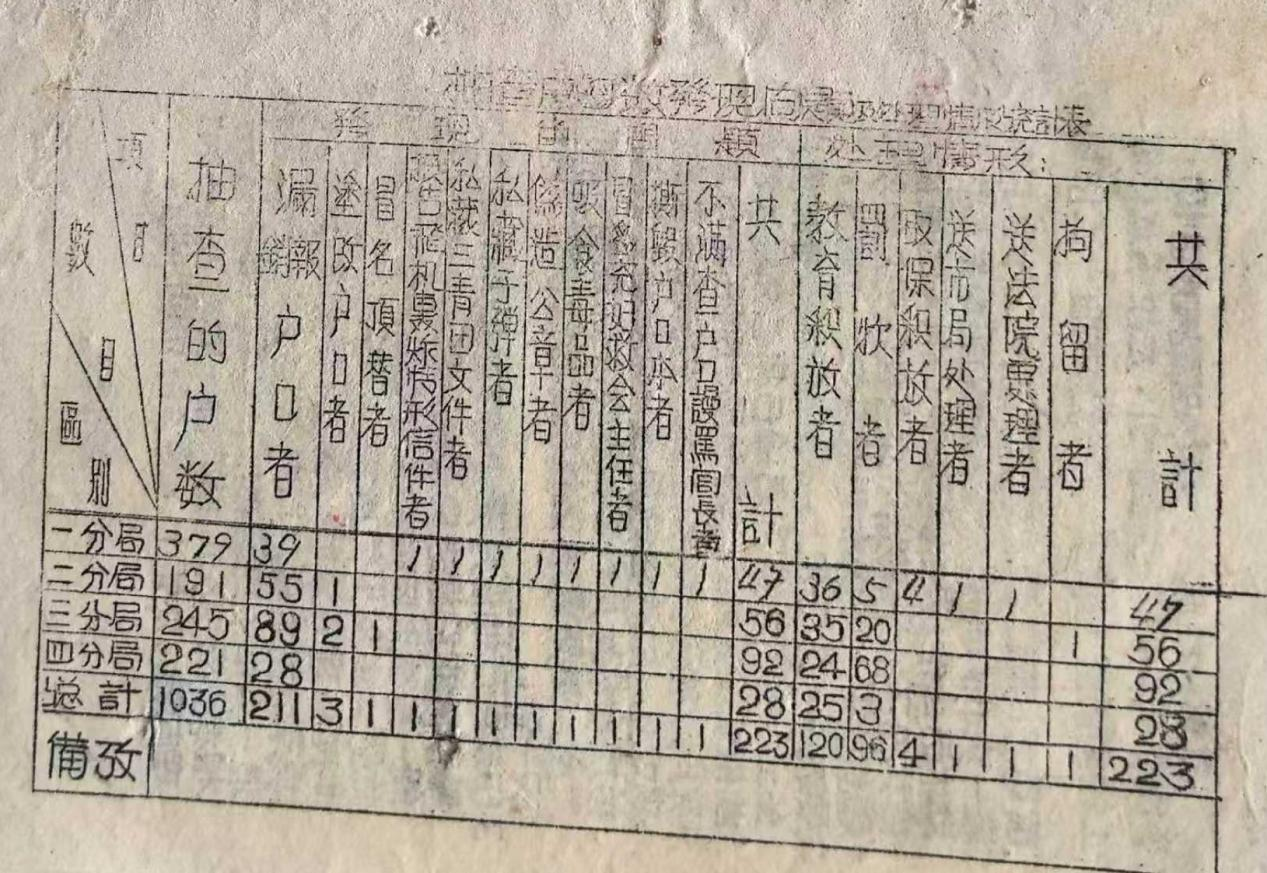 抽查户口数發現的問題及处理情形統計表
項目 數目 區别
抽查的户数
發現的問題
漏報銷户口者
塗改户口者
冒名頂替者
飛机轟炸情形信件者
私藏三青団文件者
私藏子弹者
偽造公章者
吸食毒品者
冒充妇救会主任者
撕毀户口本者
不滿查户口謾罵閭長者
共計
处理情形：
教育釈放者
罰欵者
取保釈放者
送市局处理者
送法院處理者
拘留者
共計
一分局 379 39 1 1 1 1 1 1 1 1 47 36 5 4 1 1 47
二分局 191 55 1 56 35 20 1 56
三分局 245 89 2 1 92 24 68 92
四分局 221 28 28 25 3 28
总計 1036 211 3 1 1 1 1 1 1 1 1 1 223 120 96 4 1 1 1 223
備攷